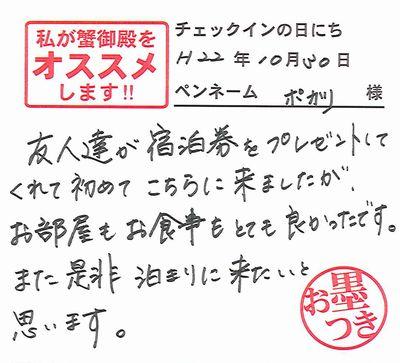 私が蟹御殿を
オススメ
します!!
チェックインの日にち
H22年10月30日
ペンネーム ポガリ 様
友人達が宿泊券をプレゼントして
くれて初めてこちらに来ましたが、
お部屋もお食事もとても良かったです。
また是非泊まりに来たいと
思います。
お墨つき